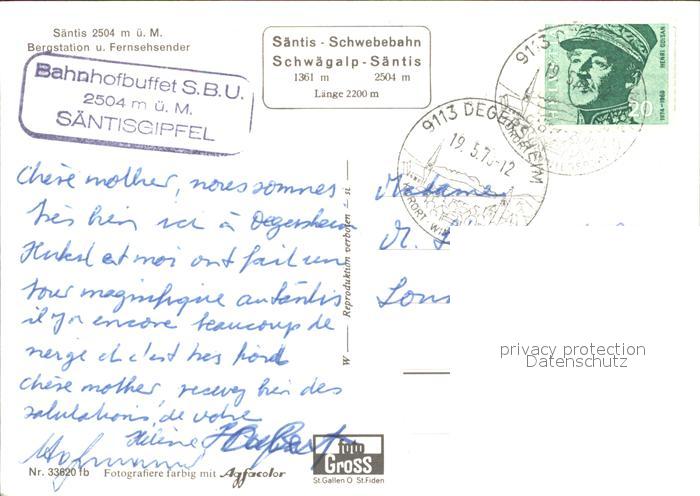 Säntis 2504 m ü. M.
Bergstation u. Fernsehsender
Säntis - Schwebebahn
Schwägalp - Säntis
1361 m 2504 m
Länge 2200 m
Bahnhofbuffet S.B.U.
2504 m ü. M.
SÄNTISGIPFEL
HELVETIA
HENRI GUISAN
1874-1960
20
9113 DEGERSHEIM
19.5.73-12
KURORT
chère mother, nous sommes
très bien ici à Degersheim
et moi ont fait un
tour magnifique au Säntis
il y a encore beaucoup de
neige et c'est très
chère mother, recevez bien des
salutations, de votre
Hélène
Madame
M.
W — Reproduktion verboten
privacy protection
Datenschutz
foto
GROSS
St.Gallen O St.Fiden
Nr. 33620 fb Fotografiere farbig mit Agfacolor